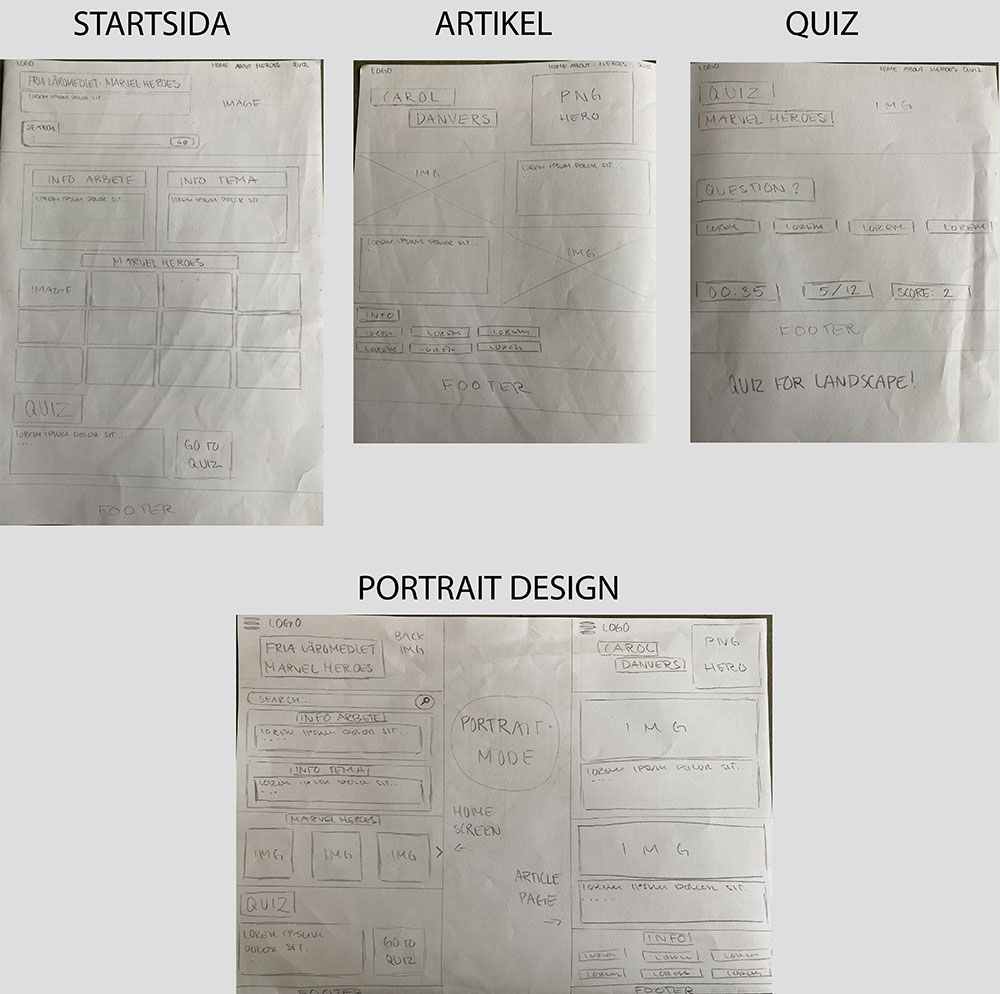 STARTSIDA
LOGO
HOME ABOUT HEROES QUIZ
FRIA LÄROMEDLET: MARVEL HEROES
LOREM IPSUM DOLOR SIT...
IMAGE
SEARCH
GO
INFO ARBETE
INFO TEMA
LOREM IPSUM DOLOR SIT.
LOREM IPSUM DOLOR SIT.
MARVEL HEROES
IMAGE
QUIZ
LOREM IPSUM DOLOR SIT...
....
GO TO
QUIZ
FOOTER
ARTIKEL
LOGO
HOME ABOUT HEROES QUIZ
CAROL
DANVERS
PNG
HERO
IMG
LOREM IPSUM DOLOR SIT...
LOREM IPSUM DOLOR SIT...
IMG
INFO
LOREM LOREM LOREM
LOREM LOREM LOREM
FOOTER
QUIZ
LOGO
HOME ABOUT HEROES QUIZ
QUIZ
MARVEL HEROES
IMG
QUESTION?
LOREM LOREM LOREM LOREM
00:35 5/12 SCORE: 2
FOOTER
QUIZ FOR LANDSCAPE!
PORTRAIT DESIGN
LOGO
FRIA LÄROMEDLET
MARVEL HEROES
BACK
IMG
SEARCH...
INFO ARBETE
LOREM IPSUM DOLOR SIT..
....
INFO TEMA
LOREM IPSUM DOLOR SIT..
...
MARVEL HEROES
IMG IMG IMG >
QUIZ
LOREM IPSUM
DOLOR SIT.
GO TO
QUIZ
FOOTER
PORTRAIT-
MODE
HOME
SCREEN
←
ARTICLE
PAGE
→
LOGO
CAROL
DANVERS
PNG
HERO
IMG
LOREM IPSUM DOLOR SIT..
....
IMG
LOREM IPSUM DOLOR SIT.
.....
INFO
LOREM LOREM LOREM
LOREM LOREM LOREM
FOOTER